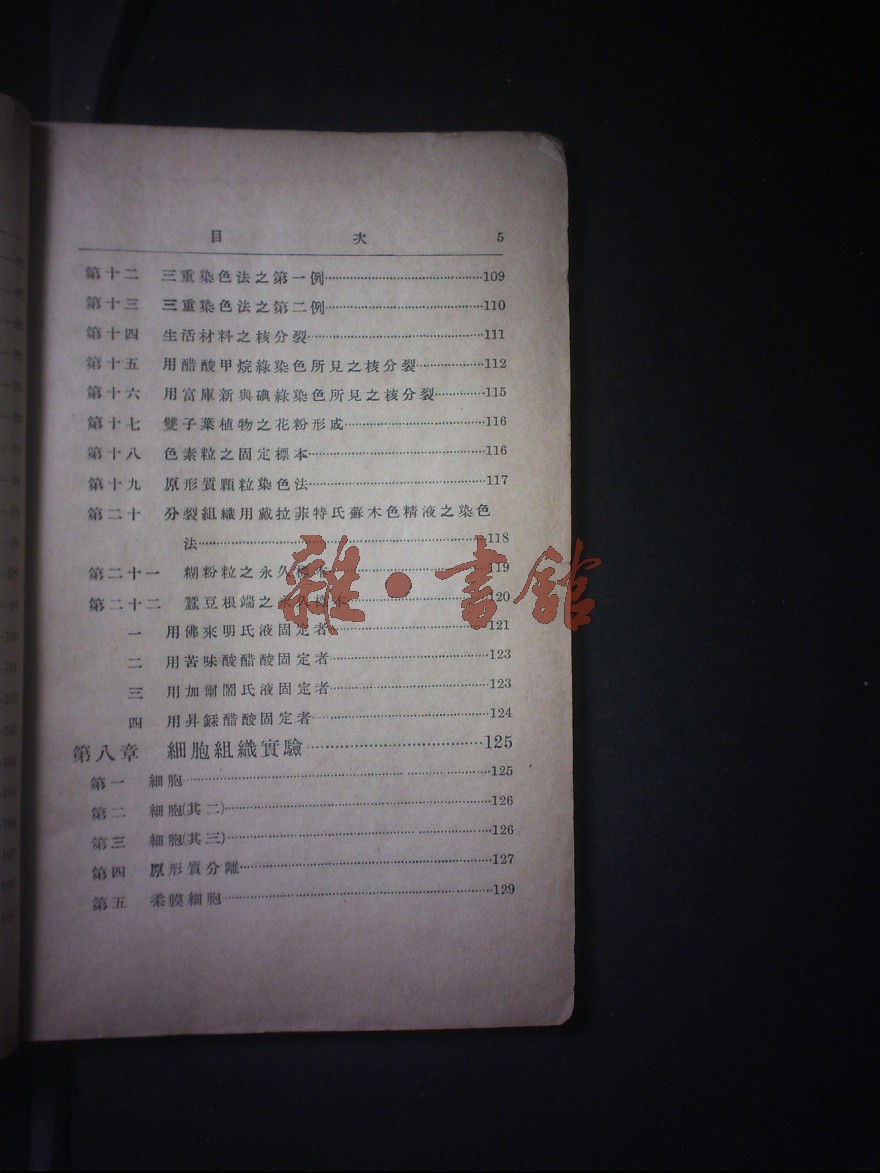 目 次 5
第十二 三重染色法之第一例 109
第十三 三重染色法之第二例 110
第十四 生活材料之核分裂 111
第十五 用醋酸甲烷綠染色所見之核分裂 112
第十六 用富庫新與碘綠染色所見之核分裂 115
第十七 雙子葉植物之花粉形成 116
第十八 色素粒之固定標本 116
第十九 原形質顆粒染色法 117
第二十 分裂組織用戴拉菲特氏蘇木色精液之染色
法 118
第二十一 糊粉粒之永久標本 119
第二十二 蠶豆根端之永久標本 120
一 用佛來明氏液固定者 121
二 用苦味酸醋酸固定者 123
三 用加爾閣氏液固定者 123
四 用昇銾醋酸固定者 124
第八章 細胞組織實驗 125
第一 細胞 125
第二 細胞(其二) 126
第三 細胞(其三) 126
第四 原形質分離 127
第五 柔膜細胞 129
雜·書館